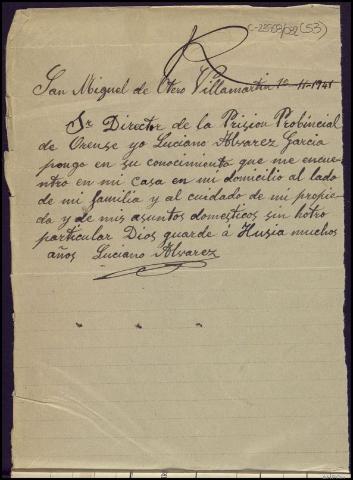 C-28568/082 (53)
R
San Miguel de Otero Villamartin 1º 11-1941
Sr Director de la Prision Probincial
de Orense yo Luciano Alvarez Garcia
pongo en su conocimiento que me encue
ntro en mi casa en mi domicilio al lado
de mi familia y al cuidado de mi propie
da y de mis asuntos domesticos sin hotro
particular Dios guarde á Husia muchos
años Luciano Alvarez